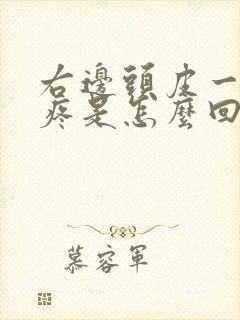 右邊頭皮一
疼是怎麼回
慕容軍